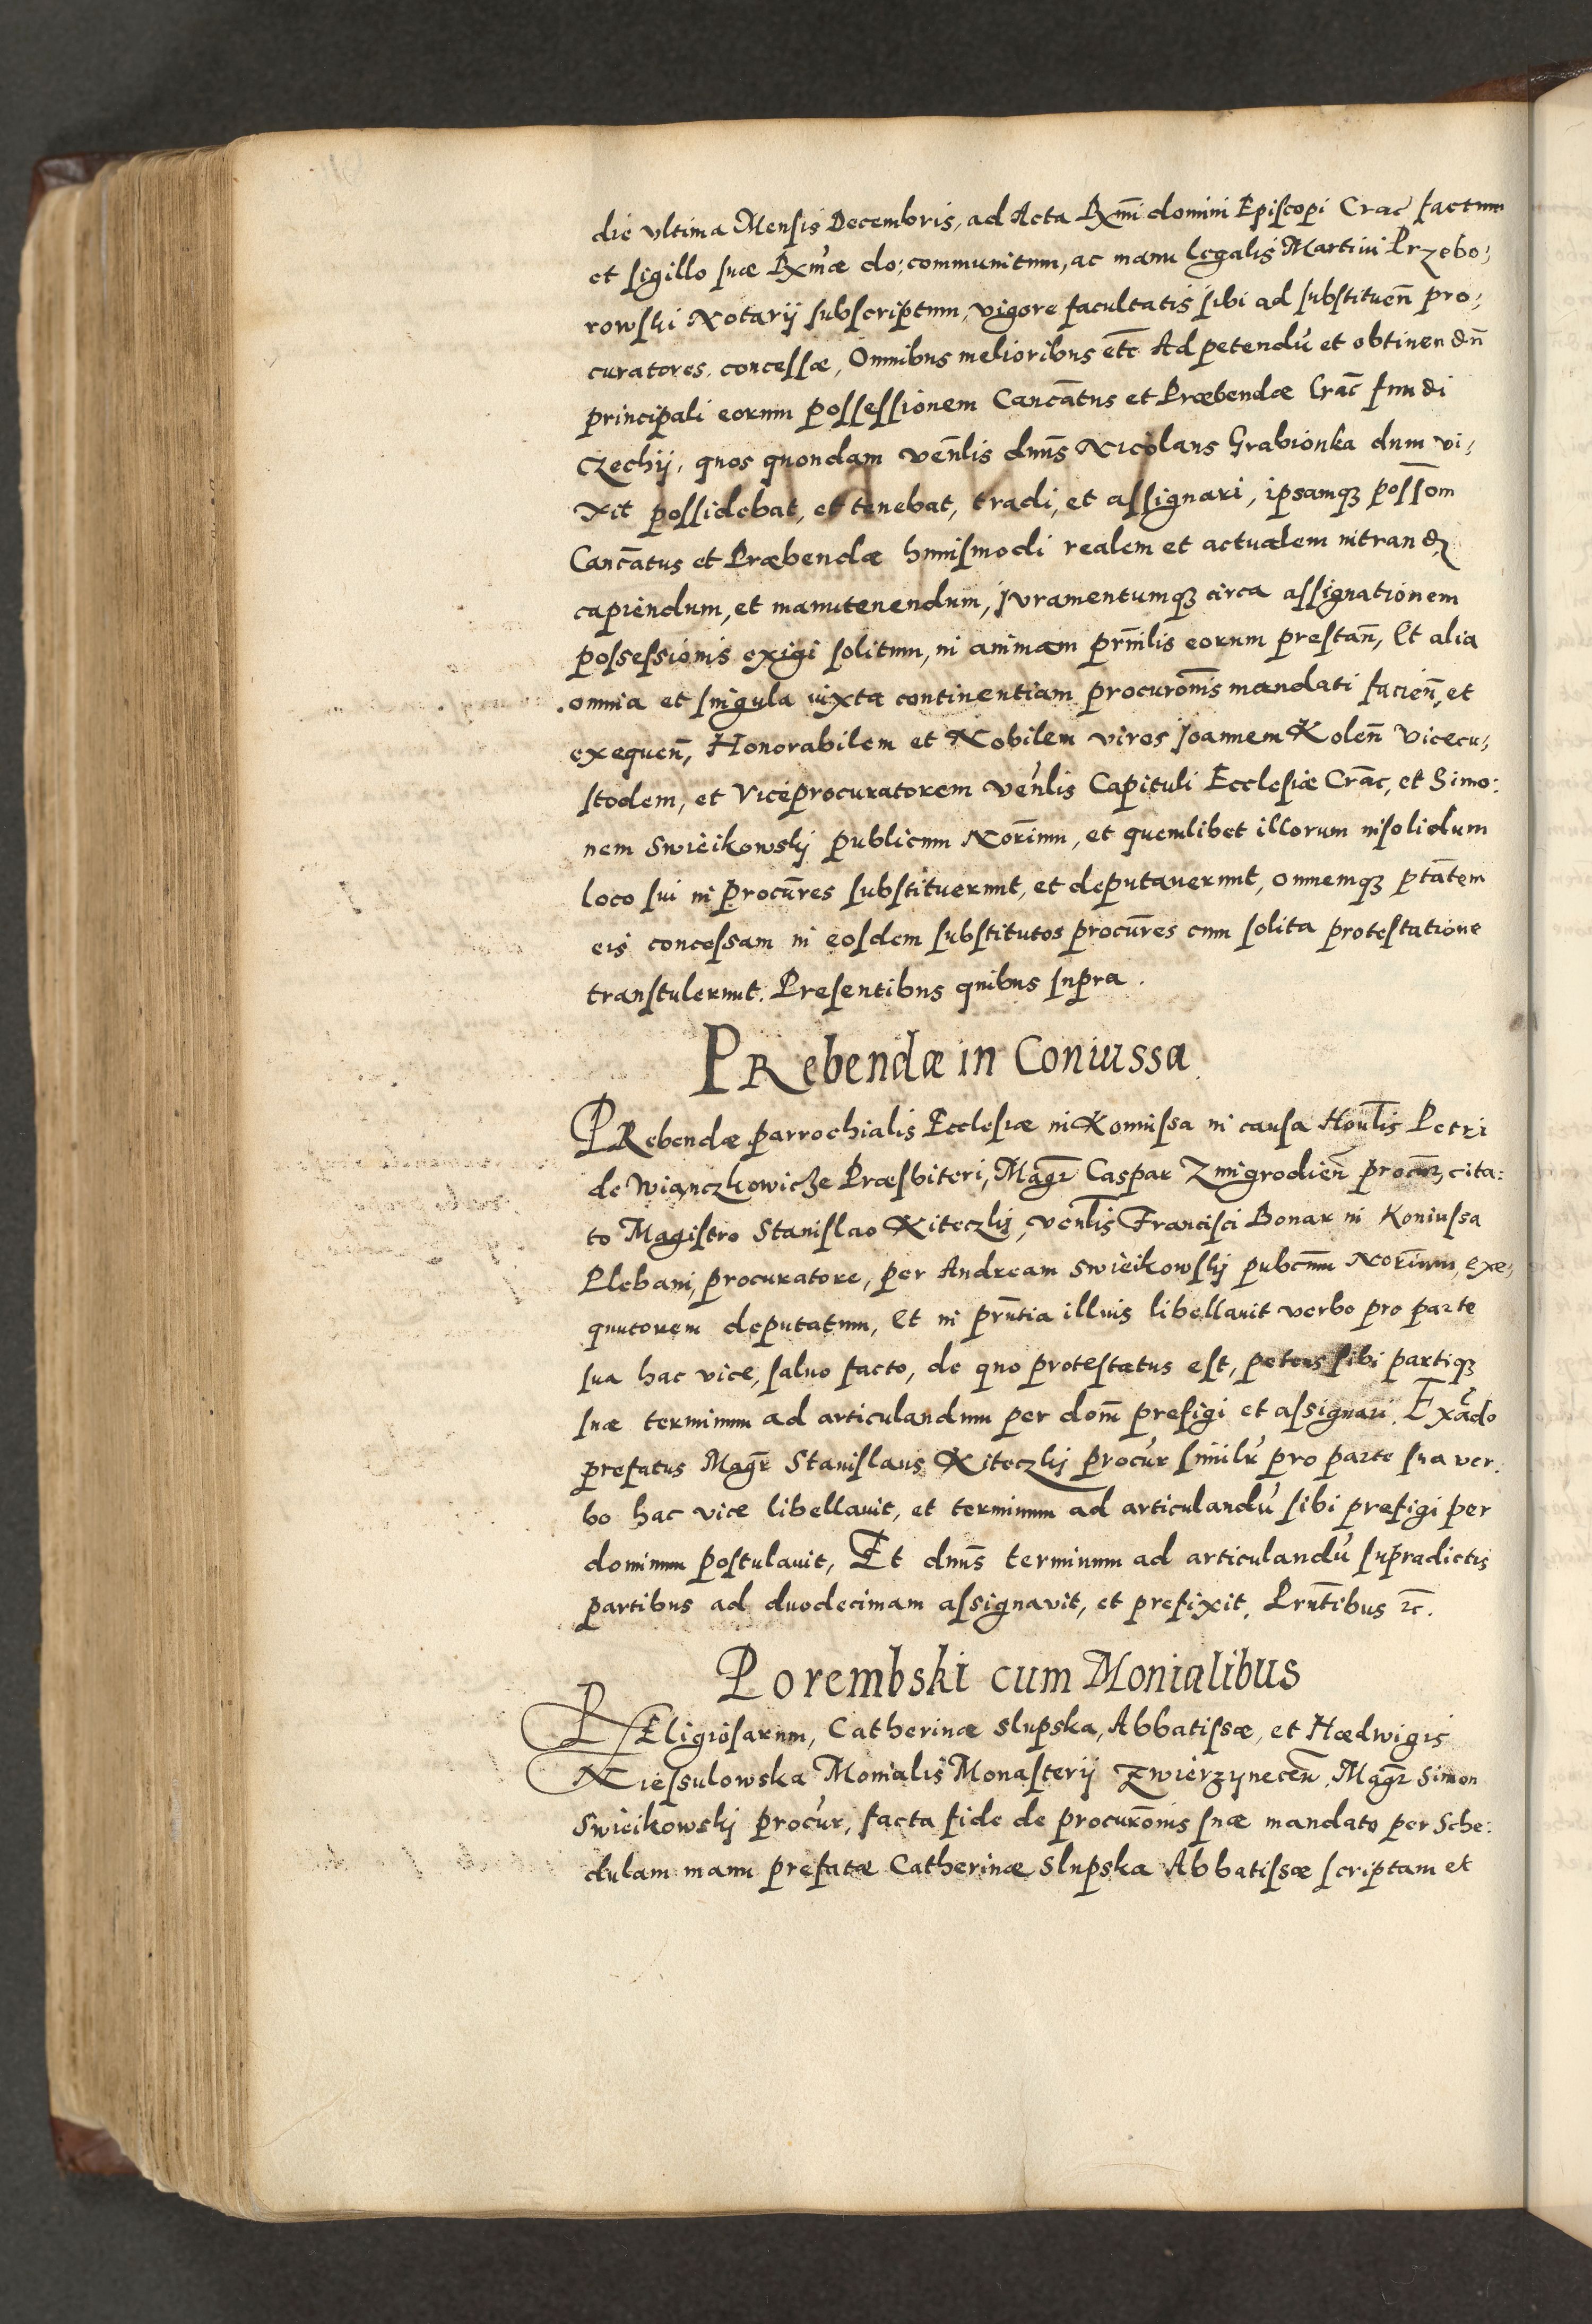 die vltima Mensis Decembris, ad Acta Rxm̄i domini Episcopi Crac̄ factum
et sigillo suæ Rxm̄æ do: communitum, ac manu legalis Martini Przebo:
rowski Notarij subscriptum, vigore facultatis sibi ad substituen̄ pro:
curatores, concessæ, Omnibus melioribus etc̄ Ad petendū et obtinendn̄
principali eorum possessionem Canc̄atus et Præbendæ Crac̄ fundi
Czechij, quos quondam ven̄lis dnn̄s Nicolaus Grabionka dum vi:
xit possidebat, et tenebat, tradi, et assignari, ipsamqȝ poss̄om
Canc̄atus et Præbendæ huiusmodi realem et actualem intrand
capiendum, et manutenendum, Juramentumqȝ circa assignationem
possessionis exigi solitum, in animam prīnlis eorum prestan̄, Et alia
omnia et singula iuxta continentiam procurōnis mandati facien̄, et
exequen̄, Honorabilem et Nobilem viros Joannem Kolen̄ Vicecu:
stodem, et Viceprocuratorem ven̄lis Capituli Ecclesiæ Crac̄, et Simo:
nem Swieikowskj publicum Norīum, et quemlibet illorum insolidum
loco sui in procūres substituerunt, et deputauerunt, omnemqȝ ptātem
eis concessam in eosdem substitutos procūres cum solita protestatione
transtulerunt. Presentibus quibus supra.
PRebendæ in Coniussa
PRebendæ parrochialis Ecclesiæ in Koniussa in causa Hon̄lis Petri
de Wianczkowicze Præsbiteri, Magr̄ Caspar Zmigrodien̄ procur̄, cita:
to Magistro Stanislao Kiteczkij, ven̄lis Francisci Bonar in Koniussa
Plebani, procuratore, per Andream Swieikowskj pubcn̄m Norīum, exæ:
quutorem deputatum, Et in prn̄tia illuis libellauit verbo pro parte
sua hac vice, saluo facto, de quo protestatus est, petens sibi partiqȝ
suæ terminum ad articulandum per dom̄ prefigi et assignari. Exād̄o
prefatus Magr̄ Stanislaus Kiteczkij procūr similr̄ pro parte sua ver:
bo hac vice libellauit, et terminum ad articulandū sibi prefigi per
dominum postulauit, Et dnn̄s terminum ad articulandū supradictis
partibus ad duodecimam assignavit, et prefixit. Prn̄tibus ꝛc̄.
Porembski cum Monialibus
REligiosarum, Catherinæ Slupska, Abbatissæ, et Hædwigis
Niessulowska Monialis Monasterij Zwierzynecen̄, Magr̄ Simon
Swieikowskj procūr, facta fide de procurōnis suæ mandato per Sche:
dulam manu prefatæ Catherinæ Slupska Abbatissæ scriptam et